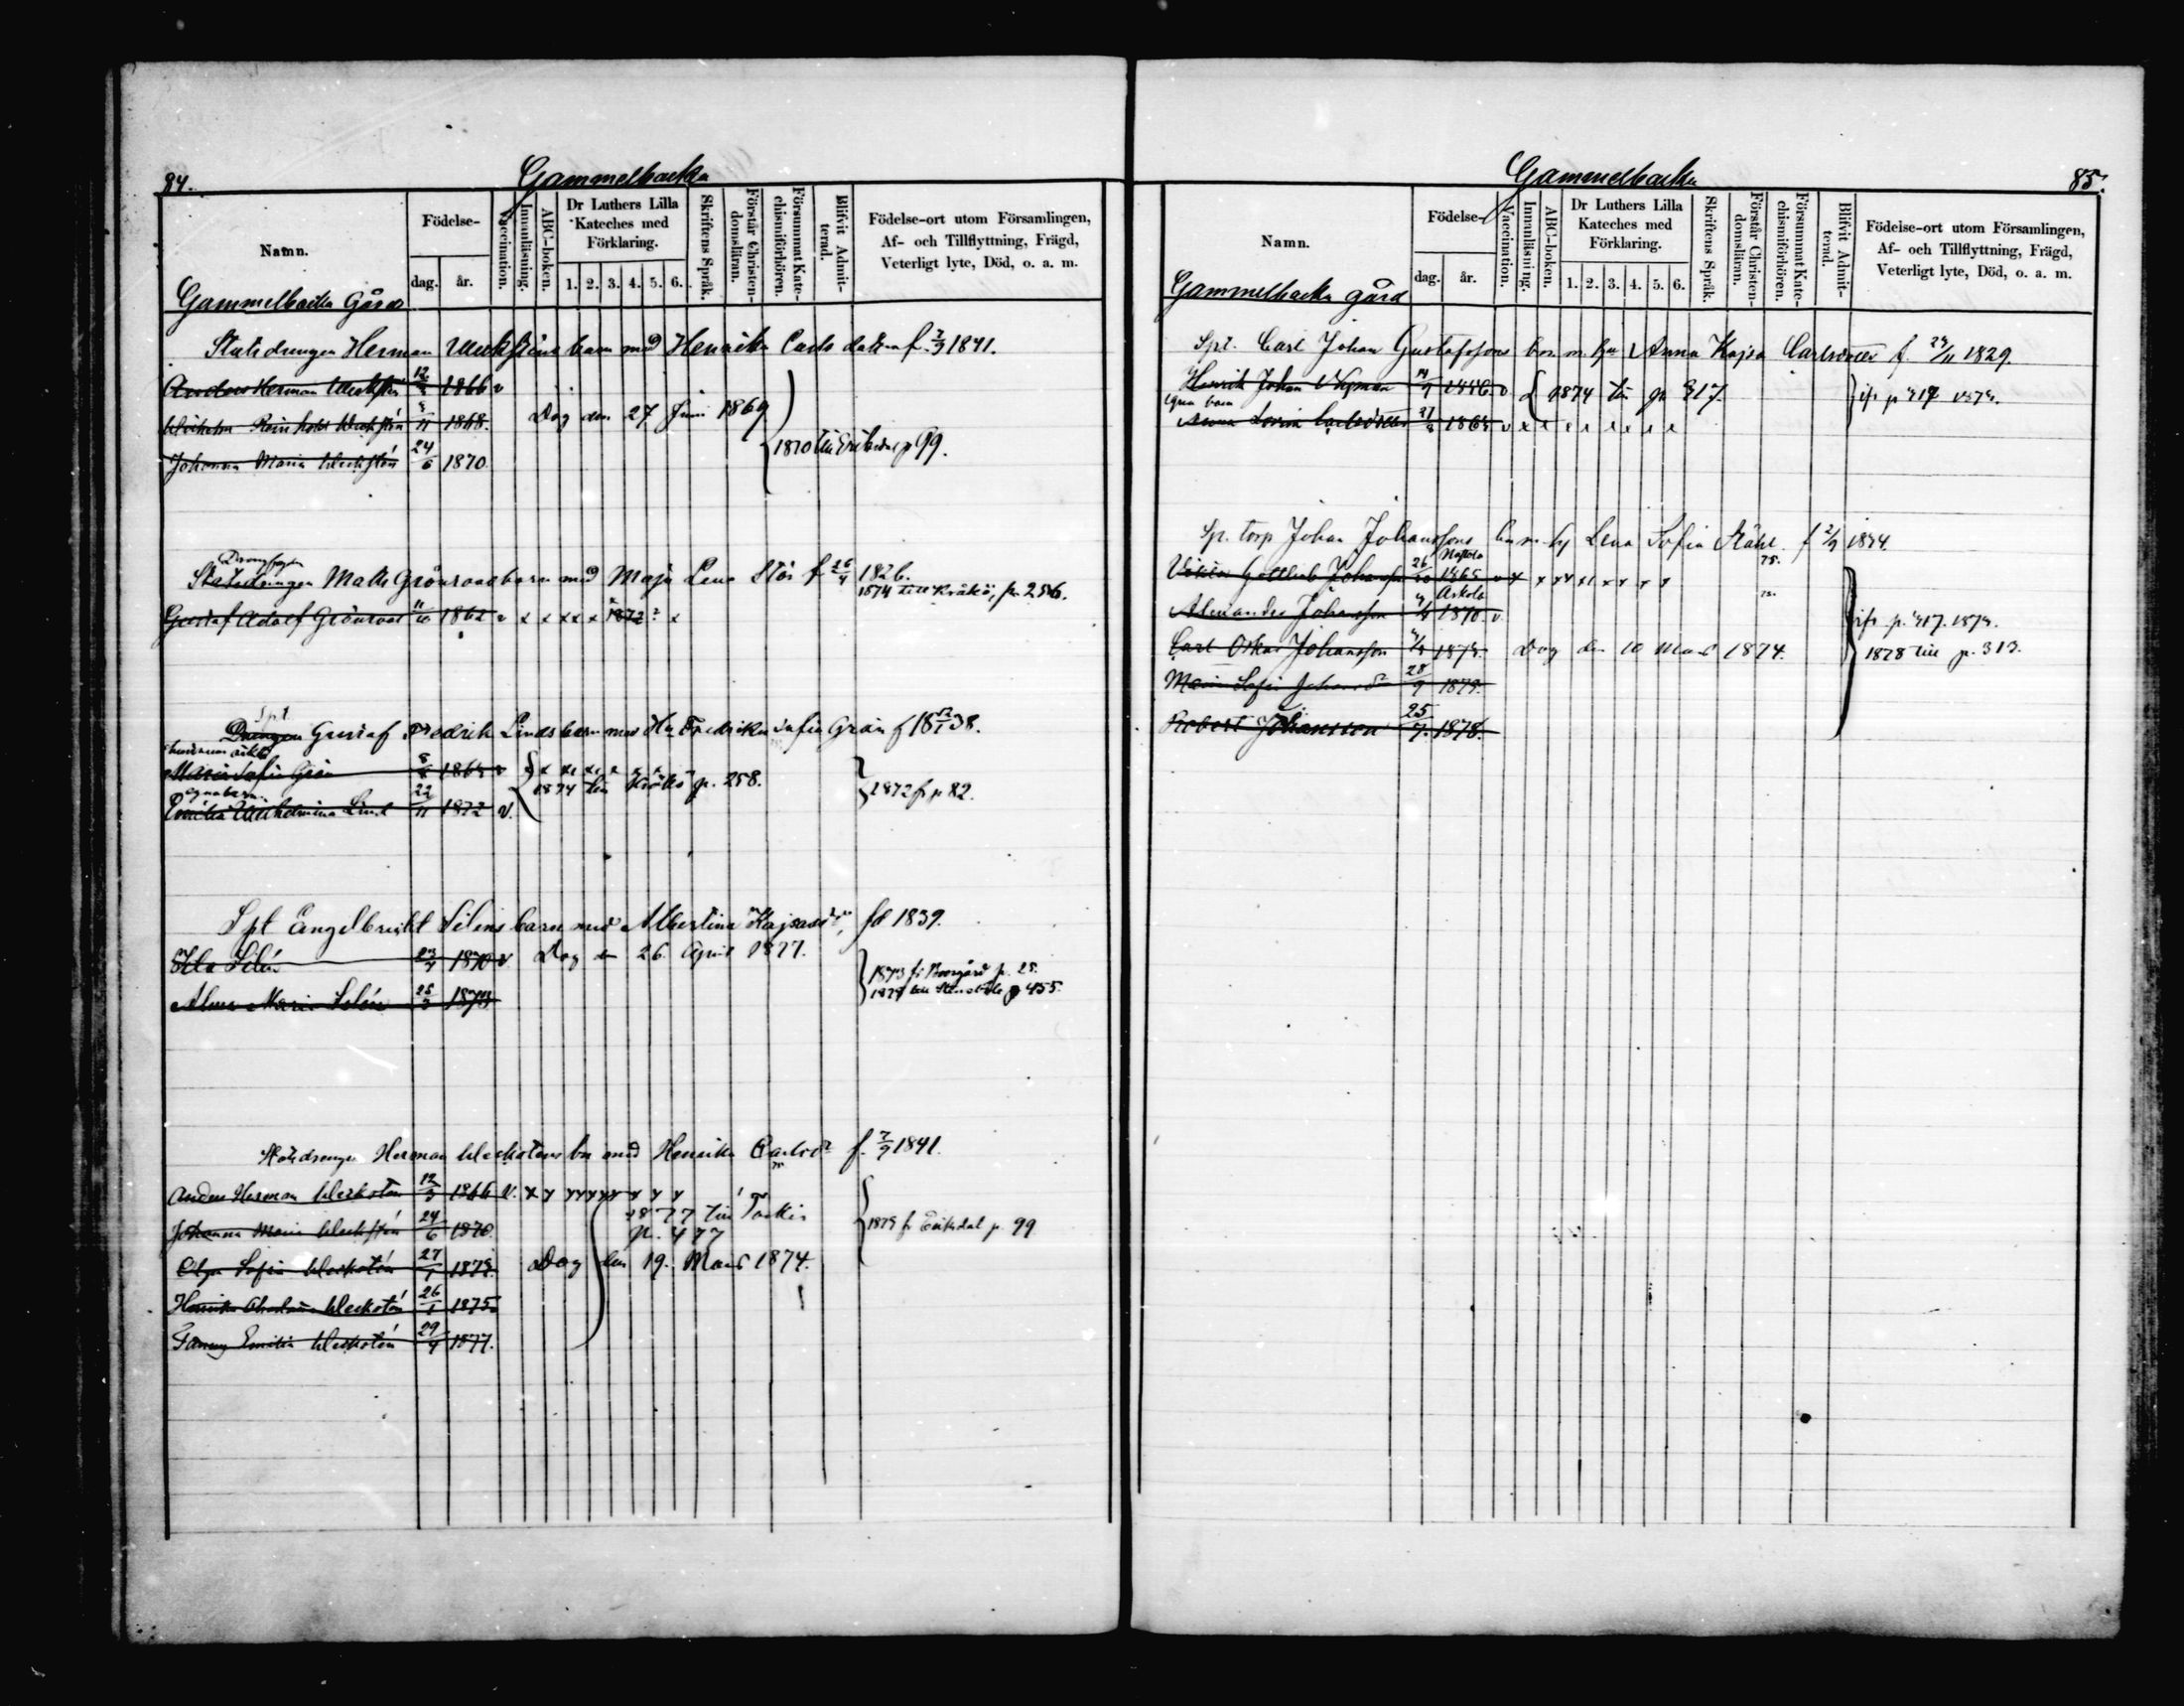 84.
Gammelbacka
Namn.
Födelse-
dag.
år.
Vaccination.
Innanläsning.
ABC-boken.
Dr Luthers Lilla
Kateches med
Förklaring.
1. 2. 3. 4. 5. 6.
Skriftens Språk.
Förstår Christen-
domsläran.
Försummat Kate-
chismiförhören.
Blifvit Admit-
terad.
Födelse-ort utom Församlingen,
Af- och Tillflyttning, Frägd,
Veterligt lyte, Död, o. a. m.
Gammelbacka Gård
Statsdrengen Herman barn med Henrika Carlsdotter f. 7/9 1841.
Anders Herman 12/3 1866 v
Wilhelm Reinhold 1868. Dog den 27 Juni 1869
Johanna Maria Weckstén 24/6 1870. 1870 till Eriksdal p 99.
Statsdrengen Matts Grönroos barn med Maja Lena Stör f 26/4 1826.
1874 till Kråkö, p. 256.
Gustaf Adolf Grönroos 11/10 1862 v x x x x x 1872 x
Spt.
Drengen Gustaf Fredrik Linds barn med Hu Fredrika Sofia Grön f 18 12/1 38.
Maria Sofia Grön 1864 v x x x x x x
egna barn 1874 till Kråkö p. 258.
Emilia Wilhelmina Lind 22/11 1872 v. 1872 fr p 82.
Spt Engelbrekt Siléns barn med Albertina Kajsasdr, fd 1839.
Silén 23/4 1870 v Dog den 26. April 1877.
1873 fr Borgård p. 25.
Alma Maria Silén 25/3 1873 p 455.
Statsdrengen Herman Weckstens bn med Henrika Carlsdr f. 7/9 1841.
Anders Herman Weckstén 12/3 1866 v. x x x x x x x x x x
1877 till Tarkis
Johanna Maria Weckstén 24/6 1870. p. 477 1873 fr Eriksdal p. 99
Olga Sofia Weckstén 27/1 1873. Dog den 19. Mars 1874.
Henrika Weckstén 26/1 1875
Fanny Emilia Weckstén 29/4 1877.
85.
Gammelbacka
Namn.
Födelse-
dag.
år.
Vaccination.
Innanläsning.
ABC-boken.
Dr Luthers Lilla
Kateches med
Förklaring.
1. 2. 3. 4. 5. 6.
Skriftens Språk.
Förstår Christen-
domsläran.
Försummat Kate-
chismiförhören.
Blifvit Admit-
terad.
Födelse-ort utom Församlingen,
Af- och Tillflyttning, Frägd,
Veterligt lyte, Död, o. a. m.
Gammelbacka gård
Spt. Carl Johan Gustafssons bn m. hu Anna Kajsa Carlsdotter f. 29/11 1829.
Henrik Johan Nyman v 1874 till p 317.
egna barn
Anna Lovisa Carlsdotter v x x x x x x x x
Sp. torp Johan Johanssons bn m. hu Lena Sofia Ståhl f 2/9 1834.
Gottlieb Johansson 26/10 1865 v x x x x x x x x x
Askola
Alexander Johansson 1870. v
ifr p. 417. 1873.
Carl Oskar Johansson 1873. Dog den 10 Mars 1874. 1878 till p. 313.
Maria Sofia Johansdr 28/9
Robert Johansson 25/7. 1878.